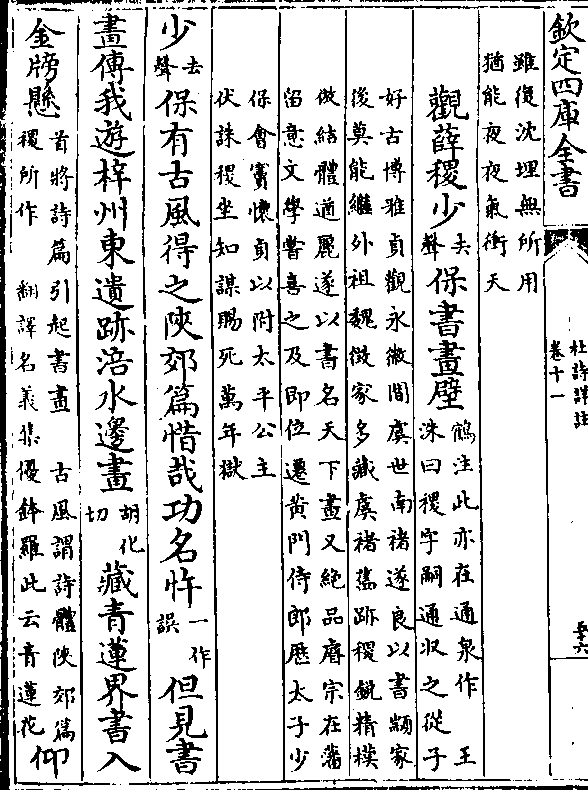 欽定四庫全書
杜詩詳註
卷十一
雖復沈埋無所用
猶能夜夜氣衝天
觀薛稷少去聲保書畫壁
鶴注此亦在通泉作　王
洙曰稷字嗣通收之從子
好古博雅貞觀永徽間虞世南褚遂良以書顓家
後莫能繼外祖魏徵家多藏虞褚舊跡稷銳精模
倣結體遒麗遂以書名天下畫又絶品睿宗在藩
留意文學嘗喜之及即位遷黄門侍郎歴太子少
保會竇懷貞以附太平公主
伏誅稷坐知謀賜死萬年獄
少去聲保有古風得之陜郊篇惜哉功名忤一作誤但見書
畫傳我遊梓州東遺跡涪水邊畫胡化切藏青蓮界書入
金牓懸
首將詩篇引起書畫　古風謂詩體陜郊篇
稷所作　翻譯名義集優鉢羅此云青蓮花
仰